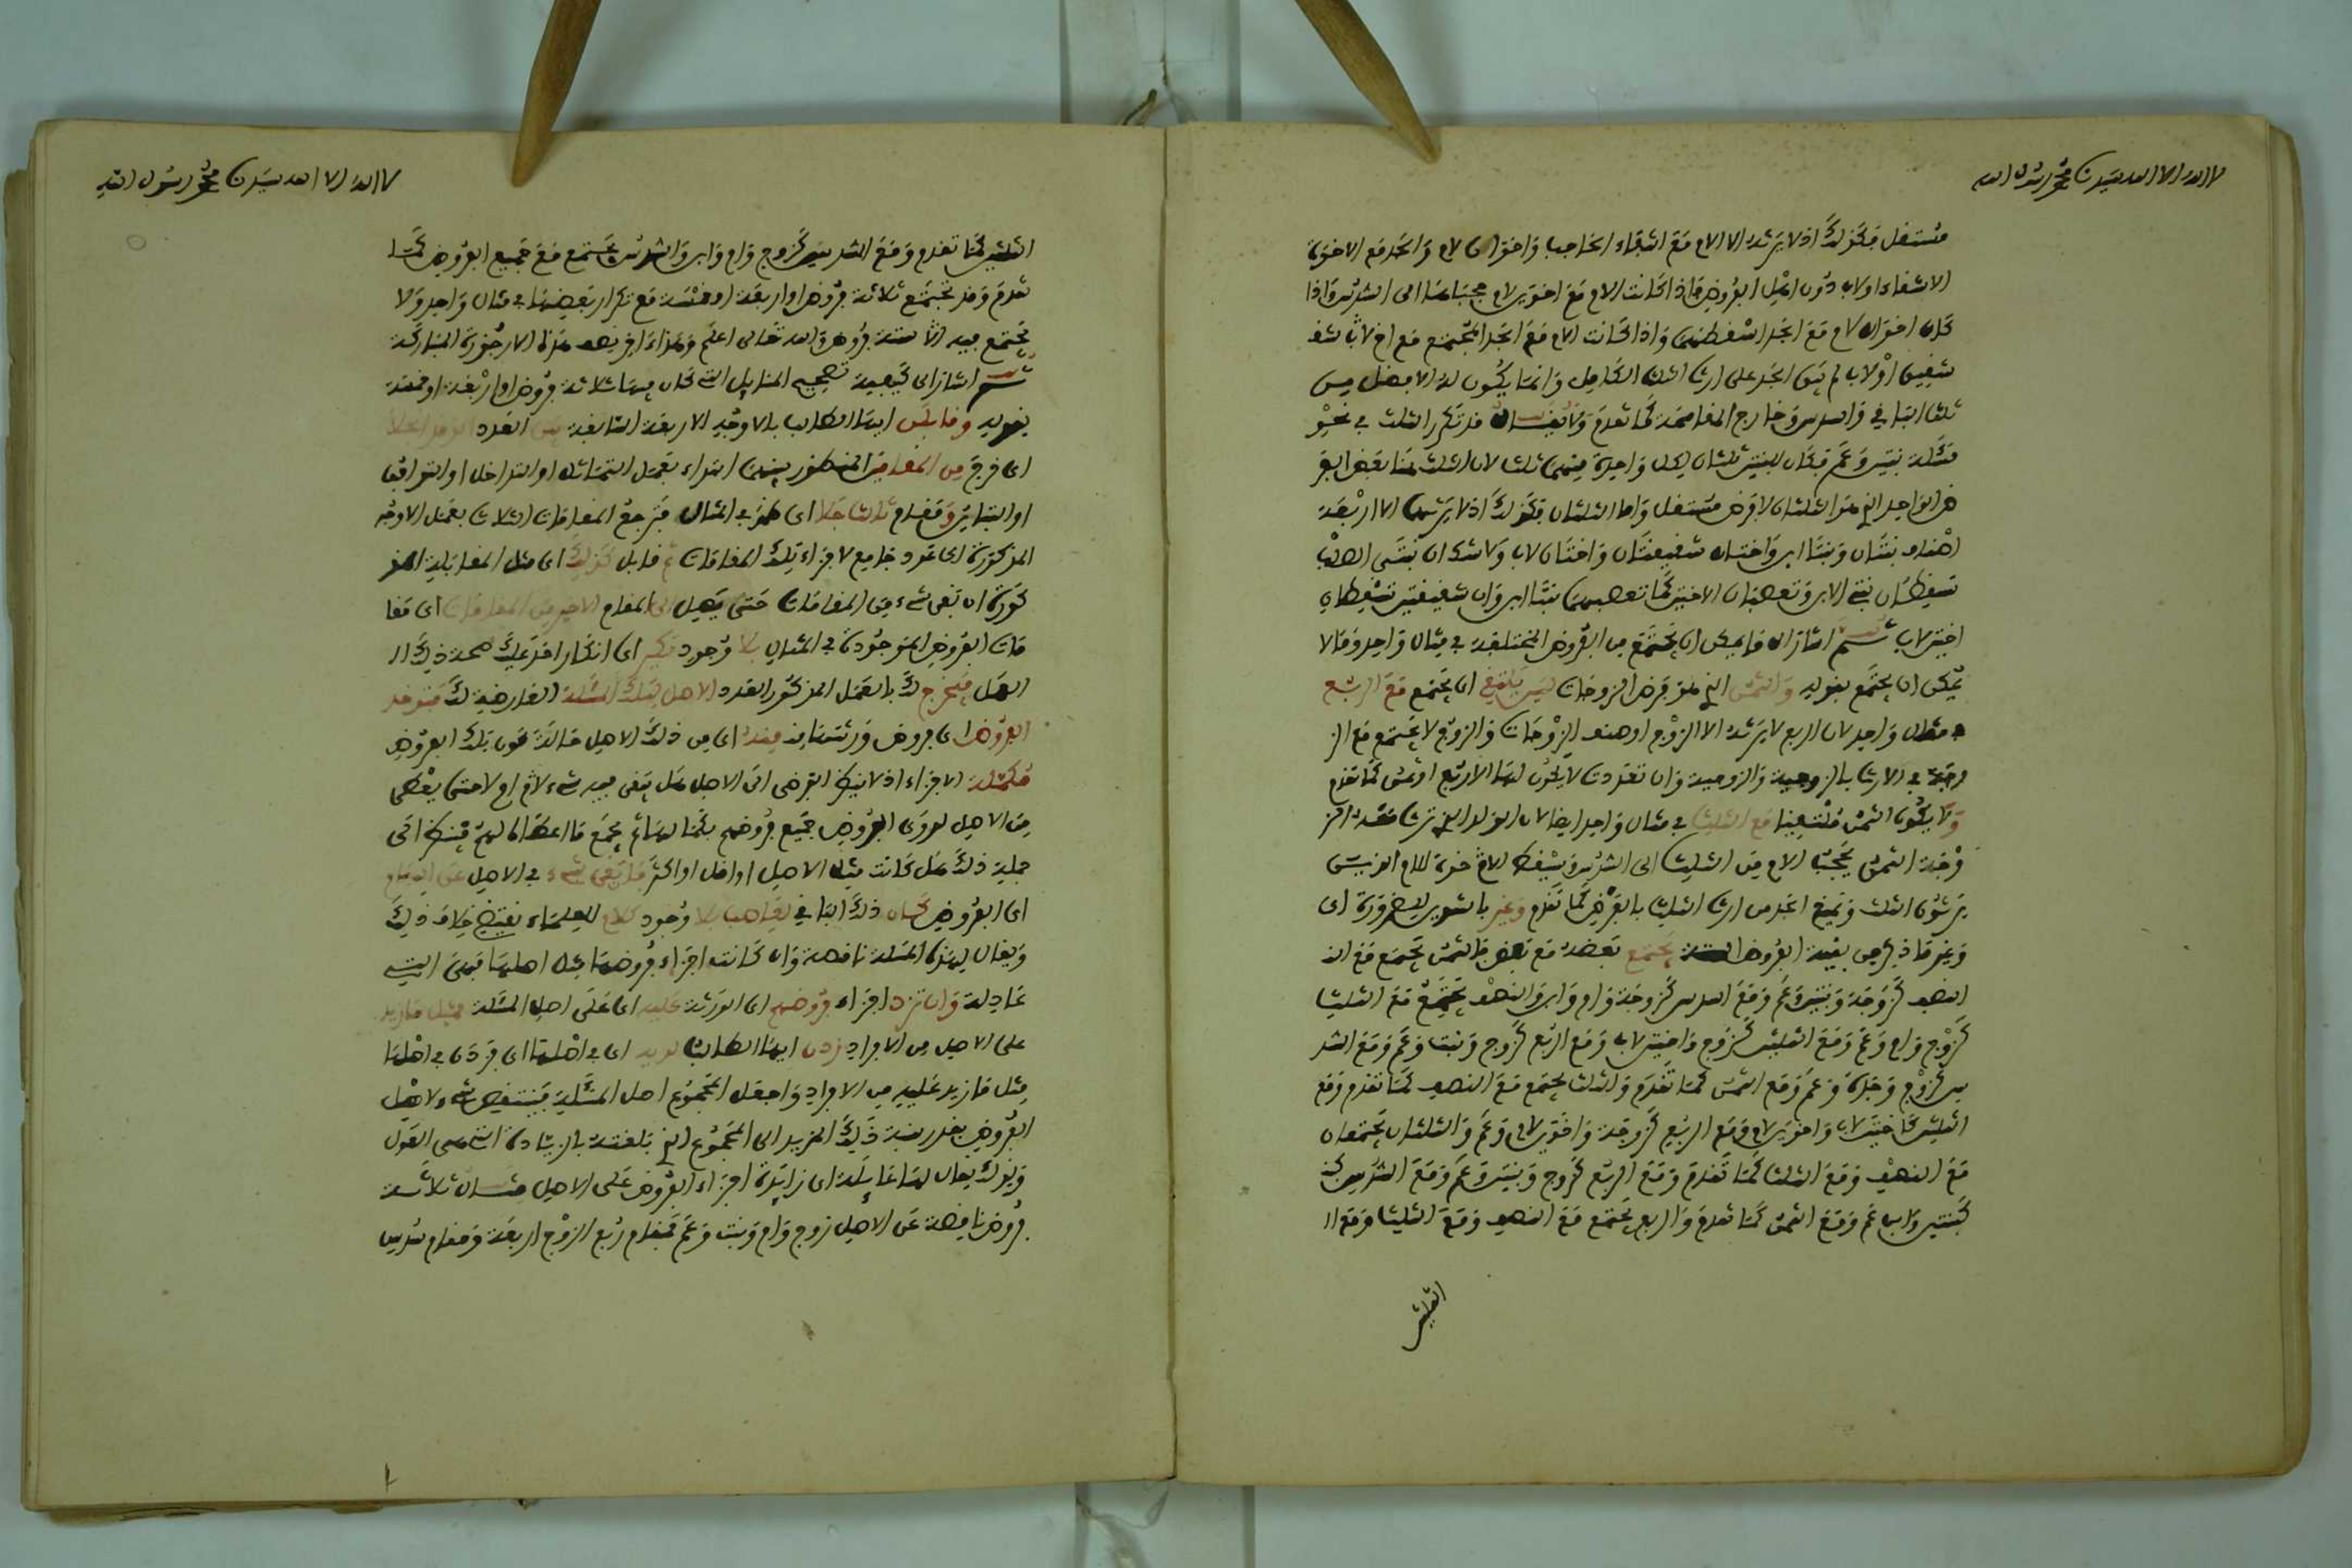 لا اله الا الله سيدنا محمد رسول الله
مستغل فكذلك اذ لا يرثه الا الام مع انتفاء الحاجب واخوان لام والجد مع الاخوة
الاشقاء او لاب دون اهل الفروض فاذا كانت الام مع اخوين لام حجباها الى السدس واذا
كان اخوان لام مع الجد اسقطهما واذا كانت الام مع الجد المجتمع مع اخ لاب شقـ
شقيق او لاب لم يبق الجد على ارث الثلث الكامل وانما يكون له الافضل من
ثلث الباقي والسدس وخارج المقاسمة كما تقدم ولا يقال قد تكرر الثلث في نحو
مسئلة بنتين وعم فكان للبنتين ثلثان لكل واحدة منهما ثلث لان الثلث هنا بعض الفر
ض الواحد الذي هو الثلثان لا فرض مستقل واما الثلثان فكذلك اذ لا يرثهما الا اربعة
اصناف بنتان وبنتا ابن واختان شقيقتان واختان لاب ولا شك ان بنتي الصلب
تسقطان بنتي الابن وتعصبان الاختين كما تعصبهما بنتا ابن وان شقيقتين تسقطان
اختين لاب ثم اشار الى ما يمكن ان يجتمع من الفروض المختلفة في مثال واحد وما لا
يمكن ان يجتمع بقوله والثمن الذي هو فرض الزوجات ليس يلتقي اي يجتمع مع الربع
في مثال واحد لان الربع لا يرثه الا الزوج او صنف الزوجات والزوج لا يجتمع مع الز
وجة في الارث بالزوجية والزوجية وان تعددت لا يكون لها الا ربع او ثمن كما تقدم
ولا يكون الثمن ملتقيا مع الثلث في مثال واحد ايضا لان الولد الذي ترث معه الز
وجة الثمن يحجب الام من الثلث الى السدس ويسقط الاخوة للام الذين
يرثون الثلث ويمنع الجد من ارث الثلث بالفرض كما تقدم وغير بالتنوين للضرورة اي
وغير ما ذكر من بقية الفروض الستة يجتمع بعضه مع بعض فالثمن يجتمع مع الن
النصف كزوجة وبنت وعم ومع السدس كزوجة وام وابن والنصف يجتمع مع الثلث
كزوج وام وعم ومع الثلثين كزوج واختين لاب ومع الربع كزوج وبنت وعم ومع السد
س كزوج وجدة وعم ومع الثمن كما تقدم والثلث يجتمع مع النصف كما تقدم ومع
الثلثين كاختين لاب واخوين لام ومع الربع كزوجة واخوين لام وعم والثلثان يجتمعان
مع النصف ومع الثلث كما تقدم ومع الربع كزوج وبنتين وعم ومع السدس كبـ
كبنتين وام وعم ومع الثمن كما تقدم والربع يجتمع مع النصف ومع الثلث ومع ا
الثلثين
لا اله الا الله سيدنا محمد رسول الله
الثلثين كما تقدم ومع السدس كزوج وام وابن والسدس يجتمع مع جميع الفروض كما
تقدم وقد تجتمع ثلاثة فروض او اربعة او خمسة مع تكرار بعضها في مثال واحد ولا
تجتمع فيه الستة فروض والله تعالى اعلم وهذا اخر نصف هذه الارجوزة المباركة
ثم اشار الى كيفية تصحيح المسايل التي كان فيها ثلاثة فروض او اربعة او خمسة
بقوله وقابلن ايها الطالب بالاوجه الاربعة السابقة بين العدد
اي خرج من المقامين المنظور بينهما ابتداء بعمل التماثل او التداخل او التوافق
او التباين ومقام ثالث جلا اي ظهر في المثال فترجع المقامات الثلاث بعمل الاوجه
المذكورة الى عدد جامع لاجزاء تلك المقامات ثم قابل كذلك اي مثل المقابلة المذ
كورة ان بقي شيء من المقامات حتى يصل الى المقام الاخير من المقامات اي مقا
مات الفروض الموجودة في المثال بلا وجود نكير اي انكار احد عليك صحة ذلك ا
العمل فيخرج لك بالعمل المذكور العدد الاصل لتلك المسئلة العارضة لك فتوخذ
الفروض اي فروض ورثتها منه اي من ذلك الاصل حالة كون تلك الفروض
مكملة الاجزاء اذ لا ينظر الفرضي الى الاصل هل بقي فيه شيء لاخ او لا حتى يعطى
من الاصل لذوي الفروض جميع فروضهم بكمالها ثم يجمع ما اعطاه لهم فينظر الى
جملة ذلك هل كانت مثل الاصل او اقل او اكثر فان بقي شيء في الاصل عن
اي الفروض كان ذلك الباقي لعاصب بلا وجود كلام للعلماء يقتضي خلاف ذلك
ويقال لهذه المسئلة ناقصة وان كانت اجزاء فروضها مثل اصلها فهي التي
عادلة وان تزد اجزاء فروضهم اي الورثة عليه اي على اصل المسئلة فمثل ما زيد
على الاصل من الافراد زدن ايها الطالب اي في اصلها اي فزد في اصلها
مثل ما زيد عليه من الافراد واجعل المجموع اصل المسئلة فينتقص شيء لاهل
الفروض بقدر نسبة ذلك المزيد الى المجموع الذي بلغته بالزيادة التي هي العول
وبذلك يقال لها عايلة اي زايدة اجزاء الفروض على الاصل مثال ثلاثة
فروض ناقصة عن الاصل زوج وام وبنت وعم فمقام ربع الزوج اربعة ومقام سدس